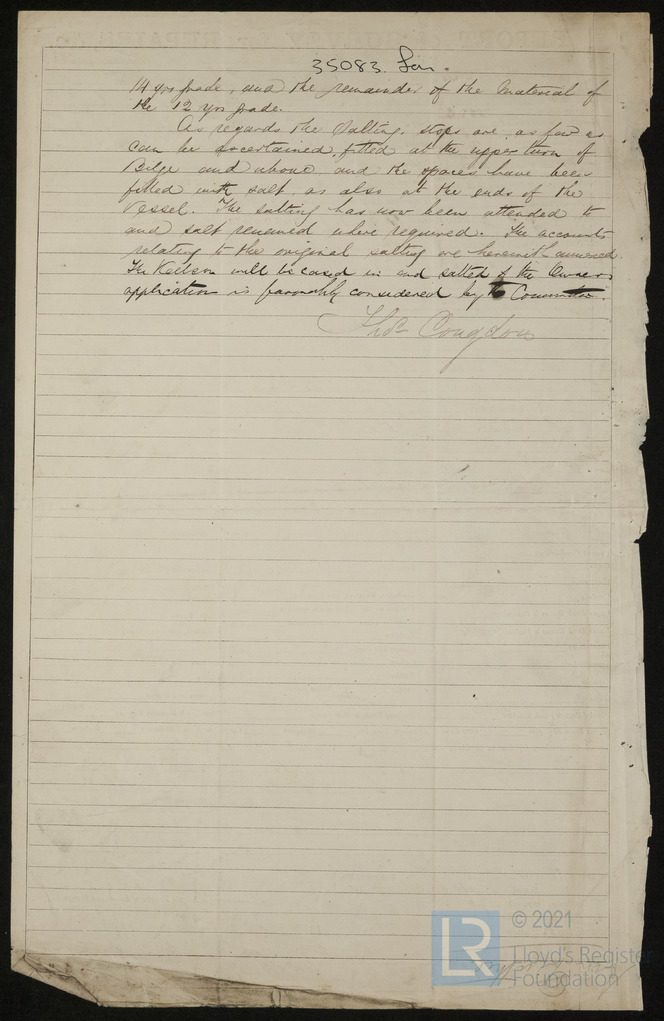 35083. Lon.
14 yrs grade, and the remainder of the Material of
the 12 yrs grade.
As regards the Salting, stops are, as far as
can be ascertained, fitted at the upper turn of
Bilge and above and the spaces have been
filled with salt, as also at the ends of the
Vessel. The salting has now been attended to
and salt renewed where required. The accounts
relating to the original salting are herewith annexed.
The Keelson will be cased in and salted if the Owners
application is favorably considered by the Committee.
Thos Congdon
LR
© 2021
Lloyd's Register
Foundation